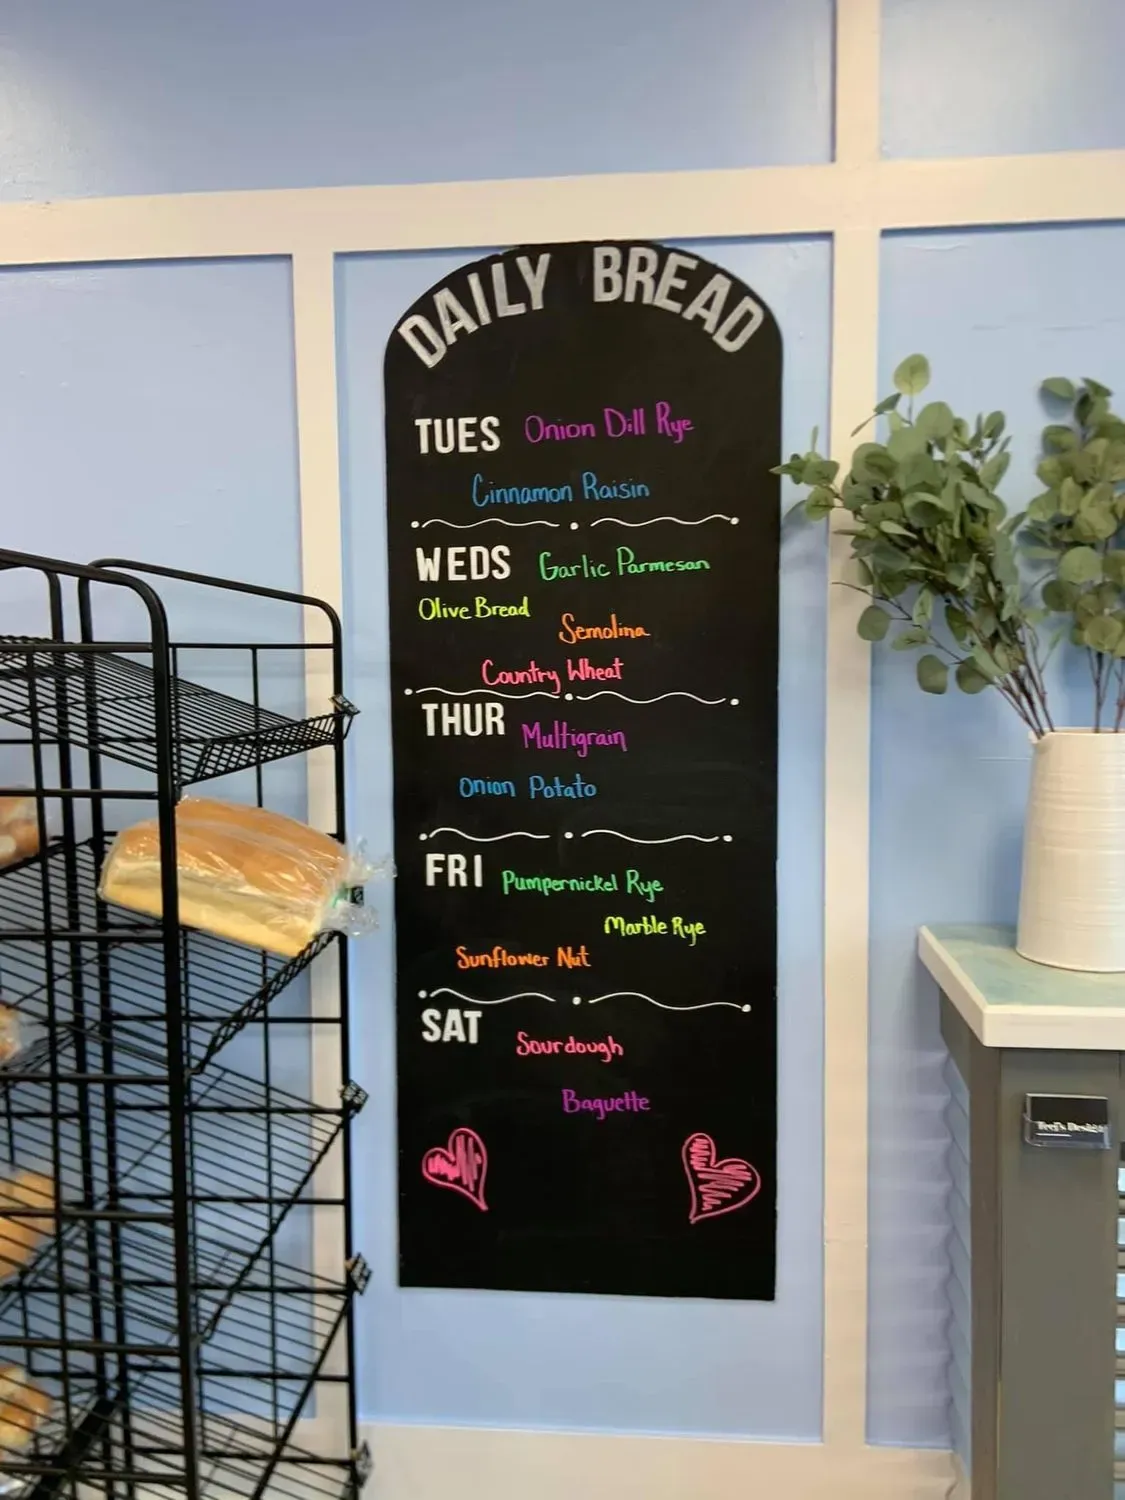 DAILY BREAD
TUES Onion Dill Rye
Cinnamon Raisin
WEDS Garlic Parmesan
Olive Bread
Semolina
Country Wheat
THUR Multigrain
Onion Potato
FRI Pumpernickel Rye
Marble Rye
Sunflower Nut
SAT Sourdough
Baguette
Teej's Design